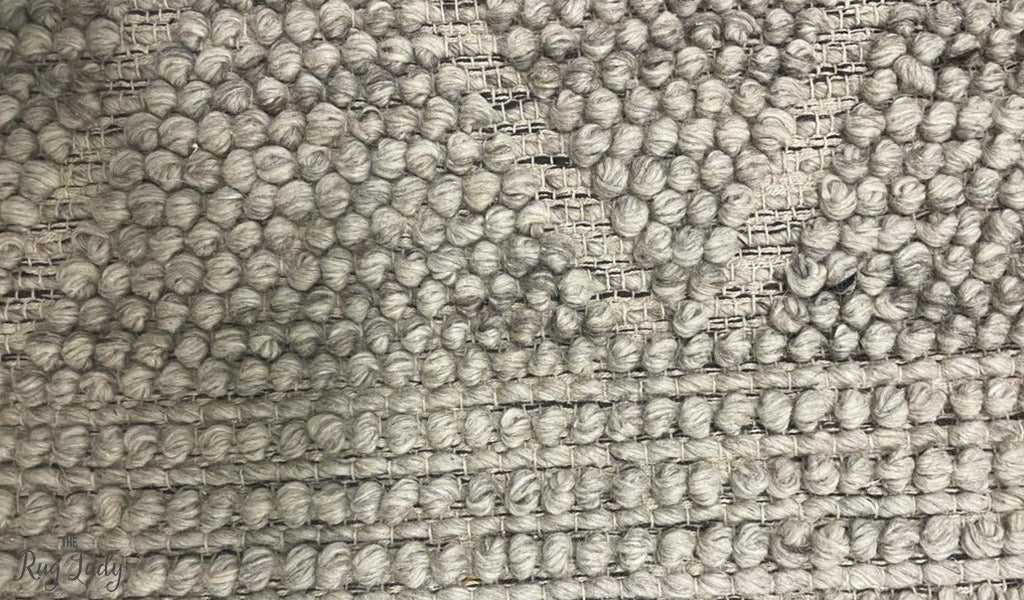 THE
Rug Lady